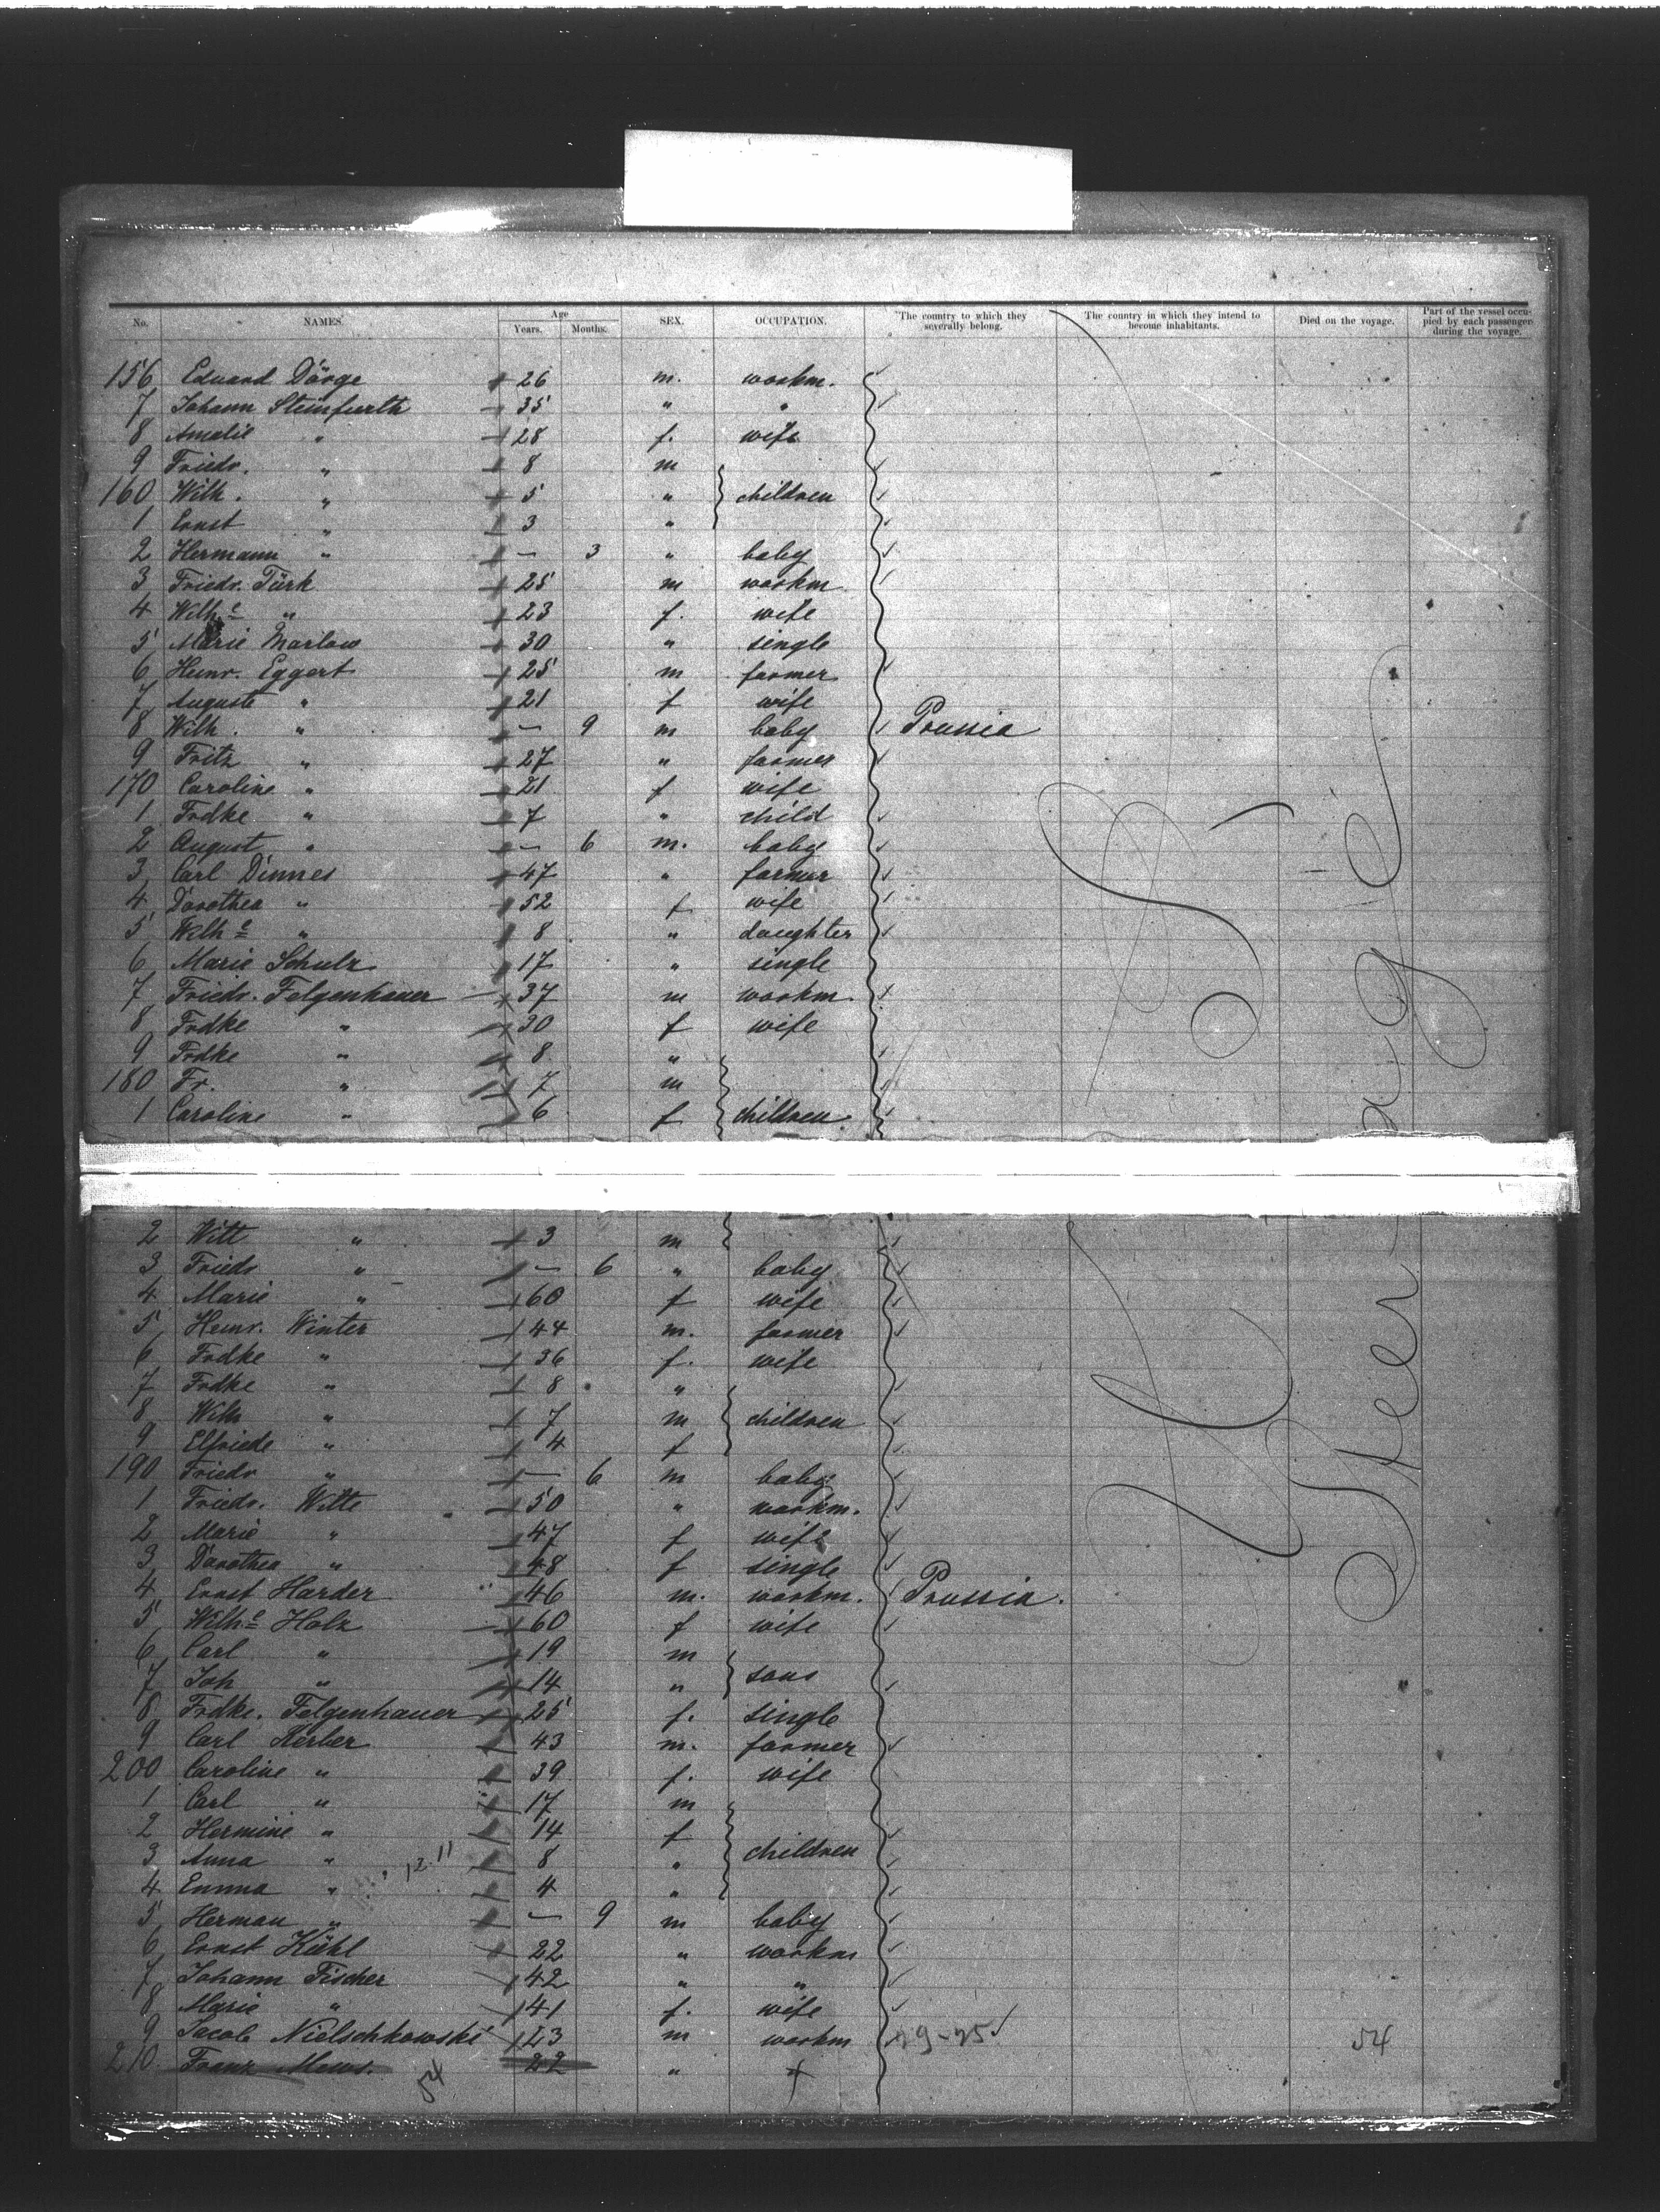 No. NAMES. Age Years. Months. SEX. OCCUPATION. The country to which they severally belong. The country in which they intend to become inhabitants. Died on the voyage. Part of the vessel occupied by each passenger during the voyage.
156 Eduard Dörge 26 m. workm.
7 Johann Steinfurth 35 " "
8 Amalie " 28 f. wife
9 Friedr. " 8 m
160 Wilh. " 5 " children
1 Ernst " 3 "
2 Hermann " — 3 " baby
3 Friedr. Türk 25 m workm
4 Wilhe " 23 f. wife
5 Marie Marlow 30 " single
6 Heinr. Eggert 25 m farmer
7 Auguste " 21 f wife
8 Wilh. " — 9 m baby Prussia
9 Fritz " 27 " farmer
170 Caroline " 21 f wife
1 Frdke " 7 " child
2 August " — 6 m. baby
3 Carl Dinnes 47 " farmer
4 Dorothea " 52 f wife
5 Wilhe " 8 " daughter
6 Marie Schulz 17 " single
7 Friedr. Felgenhauer 37 m workm.
8 Frdke " 30 f wife
9 Frdke " 8 "
180 Fr. " 7 m
1 Caroline " 6 f children
2 Witt " 3 m
3 Friedr " — 6 " baby
4 Marie " 60 f wife
5 Heinr. Winter 44 m. farmer
6 Frdke " 36 f. wife
7 Frdke " 8 "
8 Wilh " 7 m children
9 Elfriede " 4 f
190 Friedr " — 6 m baby
1 Friedr. Witte 50 " workm.
2 Marie " 47 f wife
3 Dorothea " 48 f single
4 Ernst Harder 46 m. workm. Prussia.
5 Wilhe Holz 60 f wife
6 Carl " 19 m
7 Joh " 14 " sons
8 Frdke. Felgenhauer 25 f. single
9 Carl Kerber 43 m. farmer
200 Caroline " 39 f. wife
1 Carl " 17 m
2 Hermine " 14 f
3 Anna " 8 " children
4 Emma " 4 "
5 Herman " — 9 m baby
6 Ernst Kühl 22 " workm
7 Johann Fischer 42 " "
8 Marie " 41 f. wife
9 Jacob Nielschkowski 23 m workm 29-25 54
210. Franz Mews. 22 "
54
Steerage